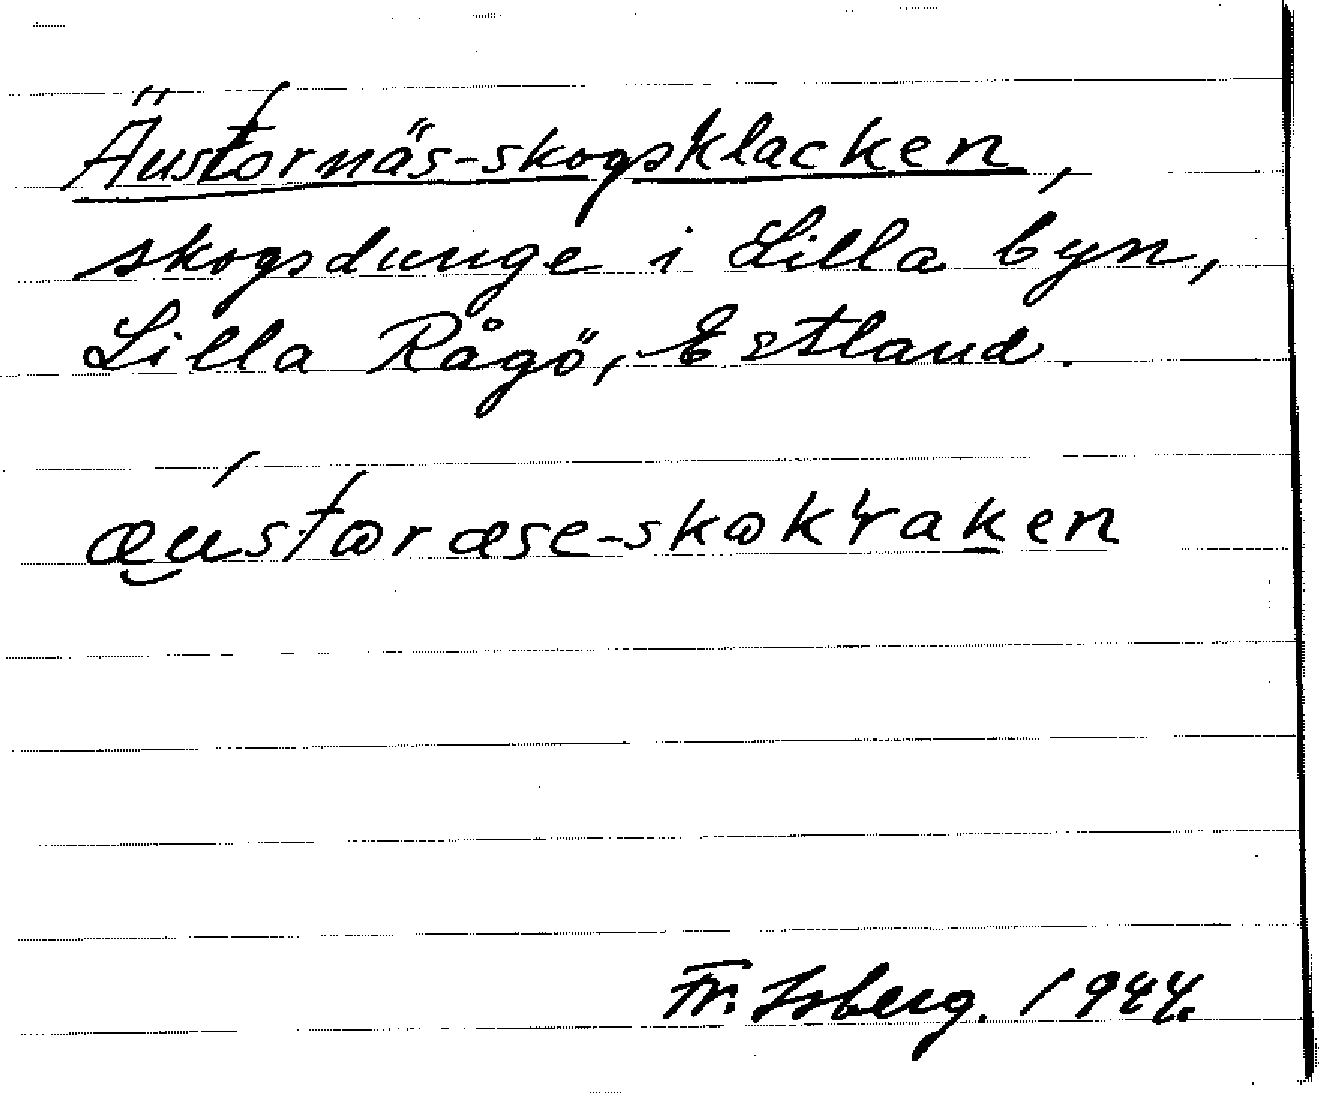 Äustornäs-skogsklacken,
skogsdunge i Lilla byn,
Lilla Rågö, Estland.
æústɷræse-skɷkɽaken
Fr. Isberg. 1944.